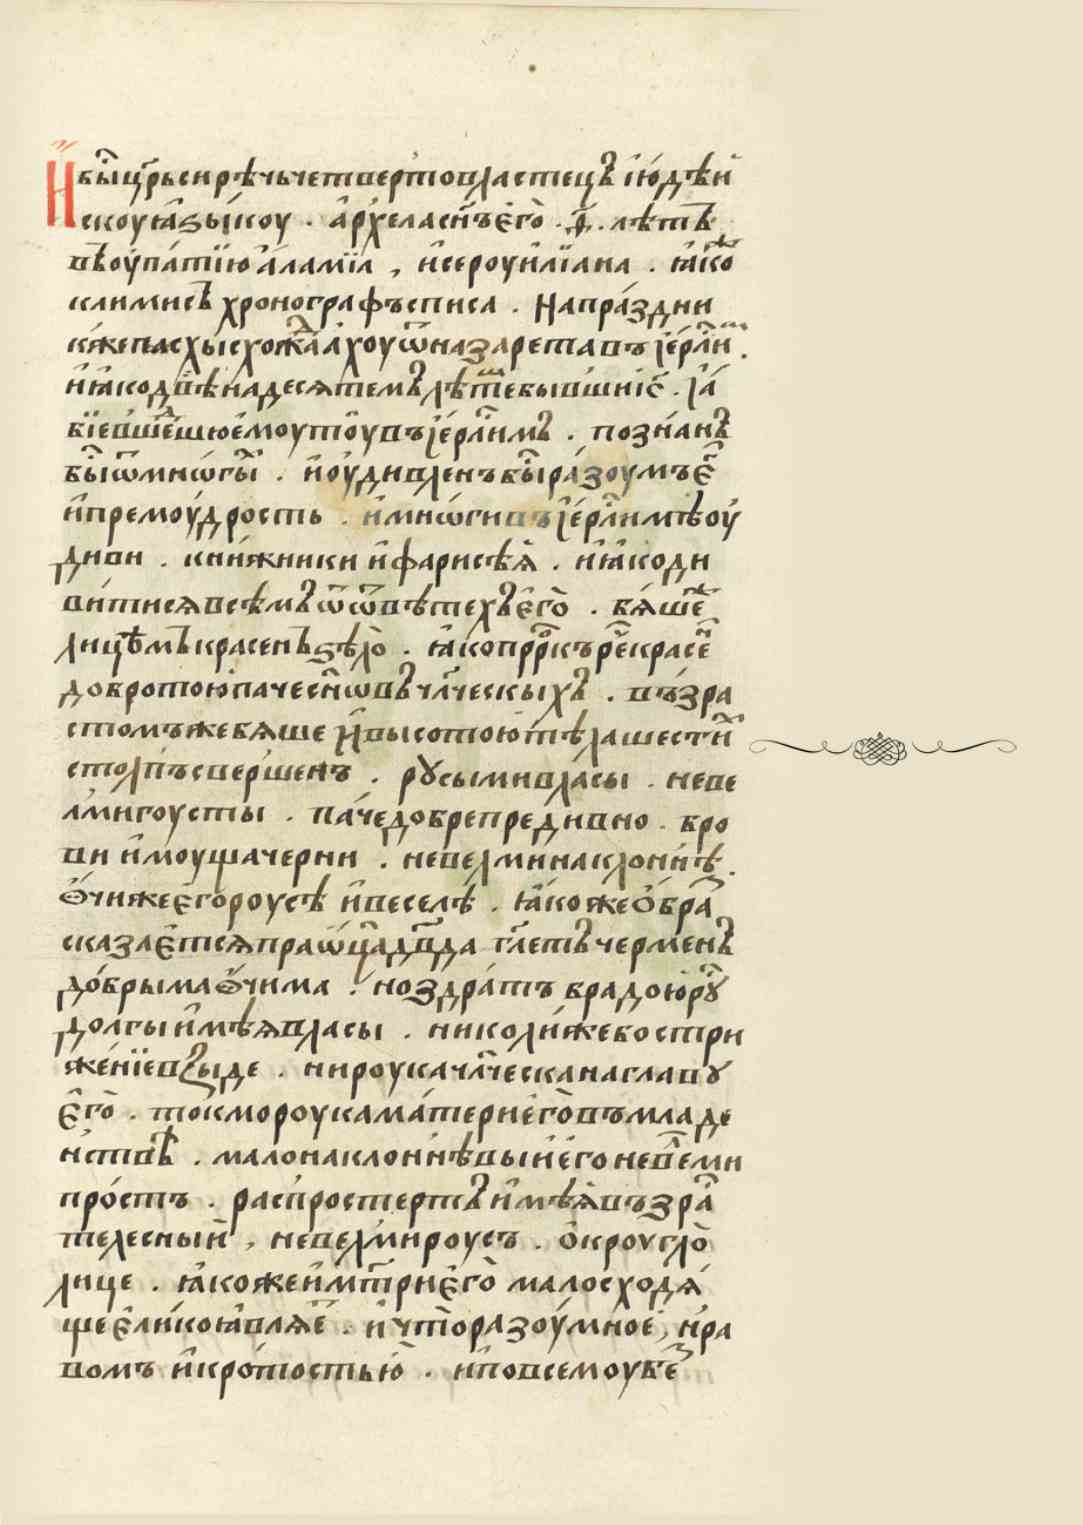 И бы́ цр҃ь сирѣчь четвертовластецъ і҆юдѣи
скоу ꙗ҆зы́коу . а҆рхела сн҃ъ е҆го̀ . д҃ . лѣтъ
въ оу҆пáтїю а҆ламїа , и҆ сероуилїана . ꙗ҆ко
климисъ хронографъ списа . На прáздни
кже пасхы исхождáа хоу ѿ назарета въ і҆ерлⷭ҇им .
и҆ ꙗ҆ко двѣнадесятемъ лѣте бывшн і҆с҃ . І҆á
бїе вшéдшю е҆моу то̀у въ і҆ерлⷭ҇имъ . познáнъ
бы́ ѿ мнѡгы́ . и҆ оу҆дивленъ бы́ рáзоумъ е҆г
и҆ премоу́дрость . и҆ мнѡги въ і҆ерлⷭ҇имѣ оу
диви . кни́жники и҆ фарисѣѧ̀ . и҆ ꙗ҆ко ди
ви́тися всѣмъ ѡ҆ ѿвѣтехъ е҆го̀ . бѧ́ше
лицемъ красенъ ѕѣло̀ . ꙗ҆ко пррⷪ҇къ рéч красе́
добротою паче сн҃ѡвъ чл҃ческыхъ . въ́зра
стомъ же бѧше и҆ высотою тѣла шести́
столпъ свершенъ . русыми власы . не ве
лми гоусты . пáче добре предивно . бро
ви и҆моуща черни . не велми наклонѝнѣ .
Ѻ҆чи же е҆го роусѣ и҆ веселѣ . ꙗ҆коже о҆бра́
сказáетсѧ праѿца дв҃да гл҃етъ черменъ
до́брыма ѻ҆чима . ноздрáтъ брадою рý
долгы и҆мѣѧ власы . николи́же бо стри
же́нїе взы́де . ни роука чл҃ческа на главу
е҆го̀ . токмо роука мáтери е҆го̀ въ младе
н́ствѣ . мало наклони́нѣ выи е҆го не велми
про́стъ . распростертъ и҆мѣѧ̀ възрá
телесный , не велми роусъ . о҆кроугло̀
лице . ꙗ҆коже и҆ мт҃ри е҆го̀ мало сходѧ́
ще е҆ли́ко ꙗ҆влѧ́е . и҆ что̀ разоу́мное , нра
вомъ и҆ кро́тостью̀ . и҆ по всемоу бе́з